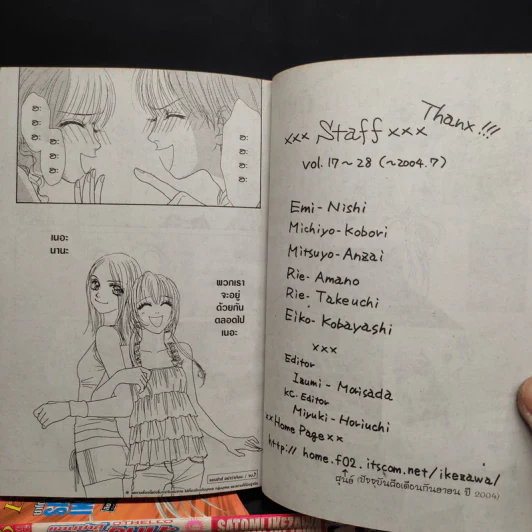 ฮะ
ฮะ
ฮะ
ฮะ
ฮะ
ฮะ
ฮะ
เนอะ
นานะ
พวกเรา
จะอยู่
ด้วยกัน
ตลอดไป
เนอะ
Thanx!!!
xxx Staff xxx
vol. 17~28 (~2004.7)
Emi-Nishi
Michiyo-Kobori
Mitsuyo-Anzai
Rie-Amano
Rie-Takeuchi
Eiko-Kobayashi
xxx
Editor
Izumi-Morisada
KC.Editor
Miyuki-Horiuchi
xx Home Page xx
http://home.f02.itscom.net/ikezawa/
(ปัจจุบันถึงเดือนกันยายน ปี 2004)
OTHELLO
SATOMI IKEZAWA